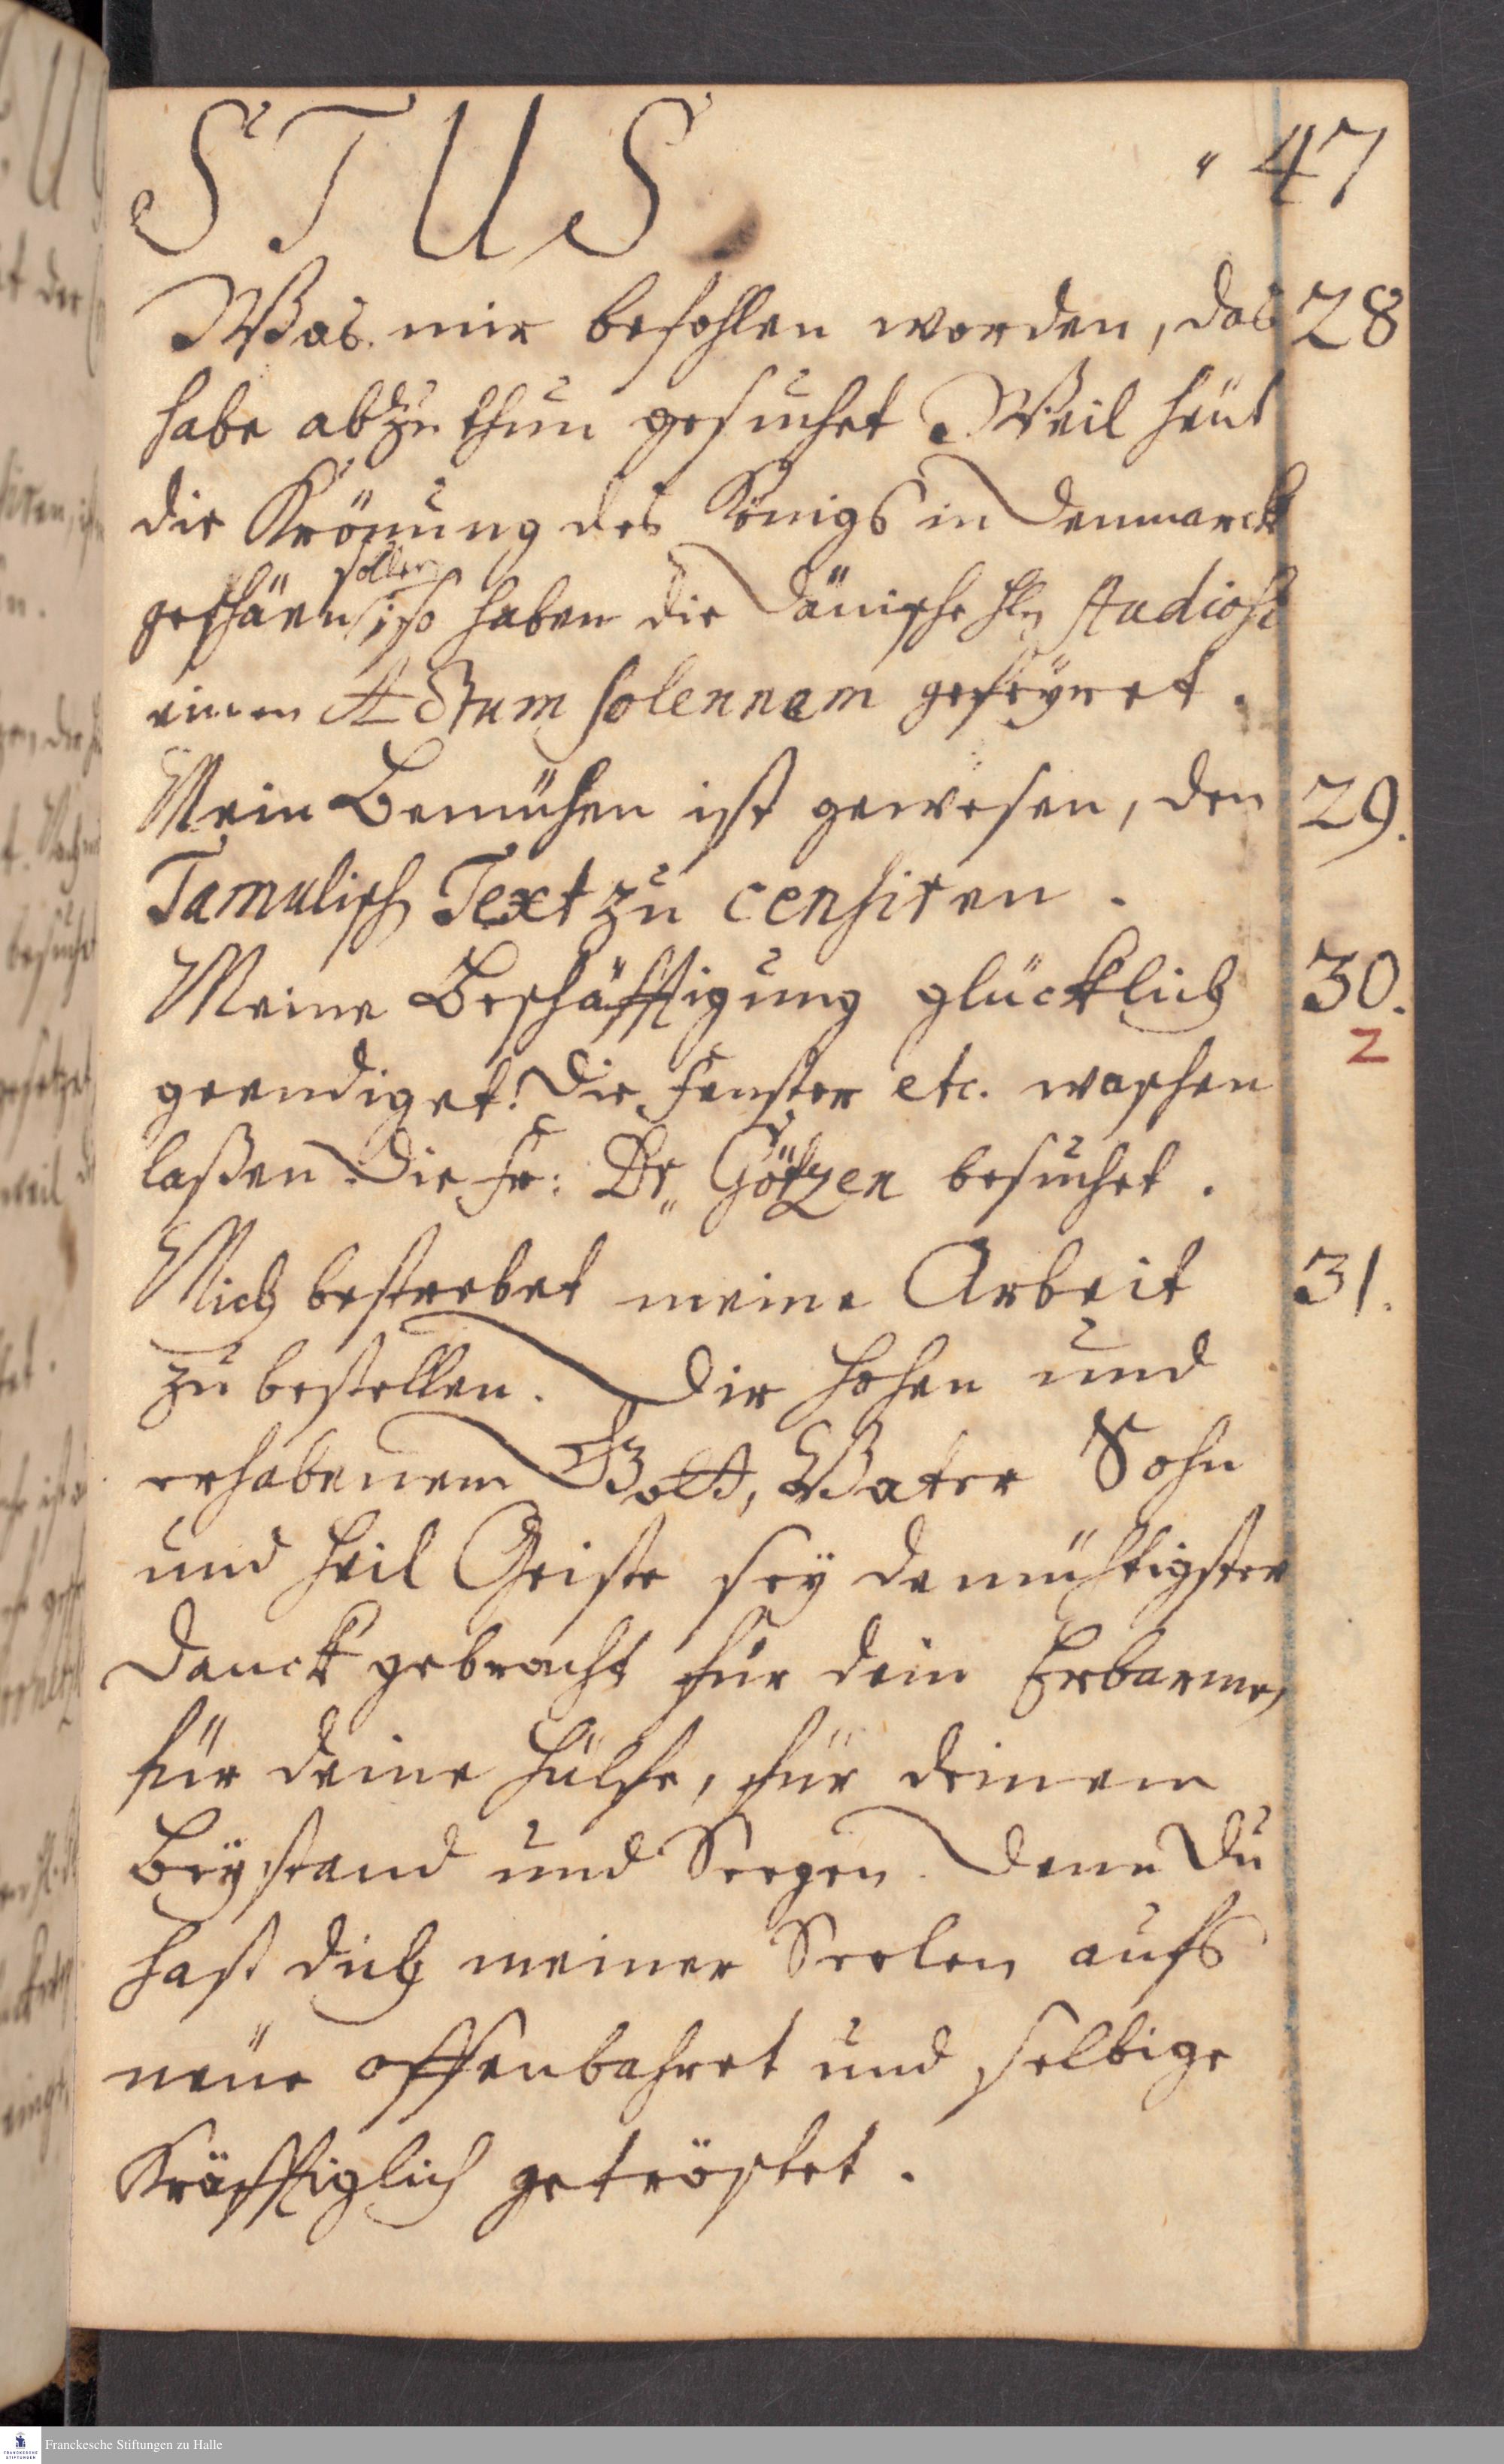 STUS
47
Was mir befohlen worden, das 28
habe abzuthun gesuchet. Weil heüt
die Krönung des Königs in Dennmarck
sollen
geschäen, so haben die Dänische Hln Studiosi
einen Actum solennem gefeÿret.
Mein Bemühen ist gewesen, den 29.
Tamulisch Text zu censiren.
Meine Beschäfftigung glücklich 30.
2
geendiget. Die Fenster etc. waschen
laßen. Die Fr: Dr. Götzen besuchet.
Mich bestrebet meine Arbeit 31.
zu bestellen. Dir hohen und
erhabenem Gott, Vater Sohn
und Heil Geiste seÿ demüthigster
Danck gebracht für dein Erbarmen,
für deine Hülfe, für deinem
Beÿstand und Seegen. Denn Du
hast dich meiner Seelen aufs
neüe offenbahret und selbige
Kräfftiglich getröstet.
Franckesche Stiftungen zu Halle